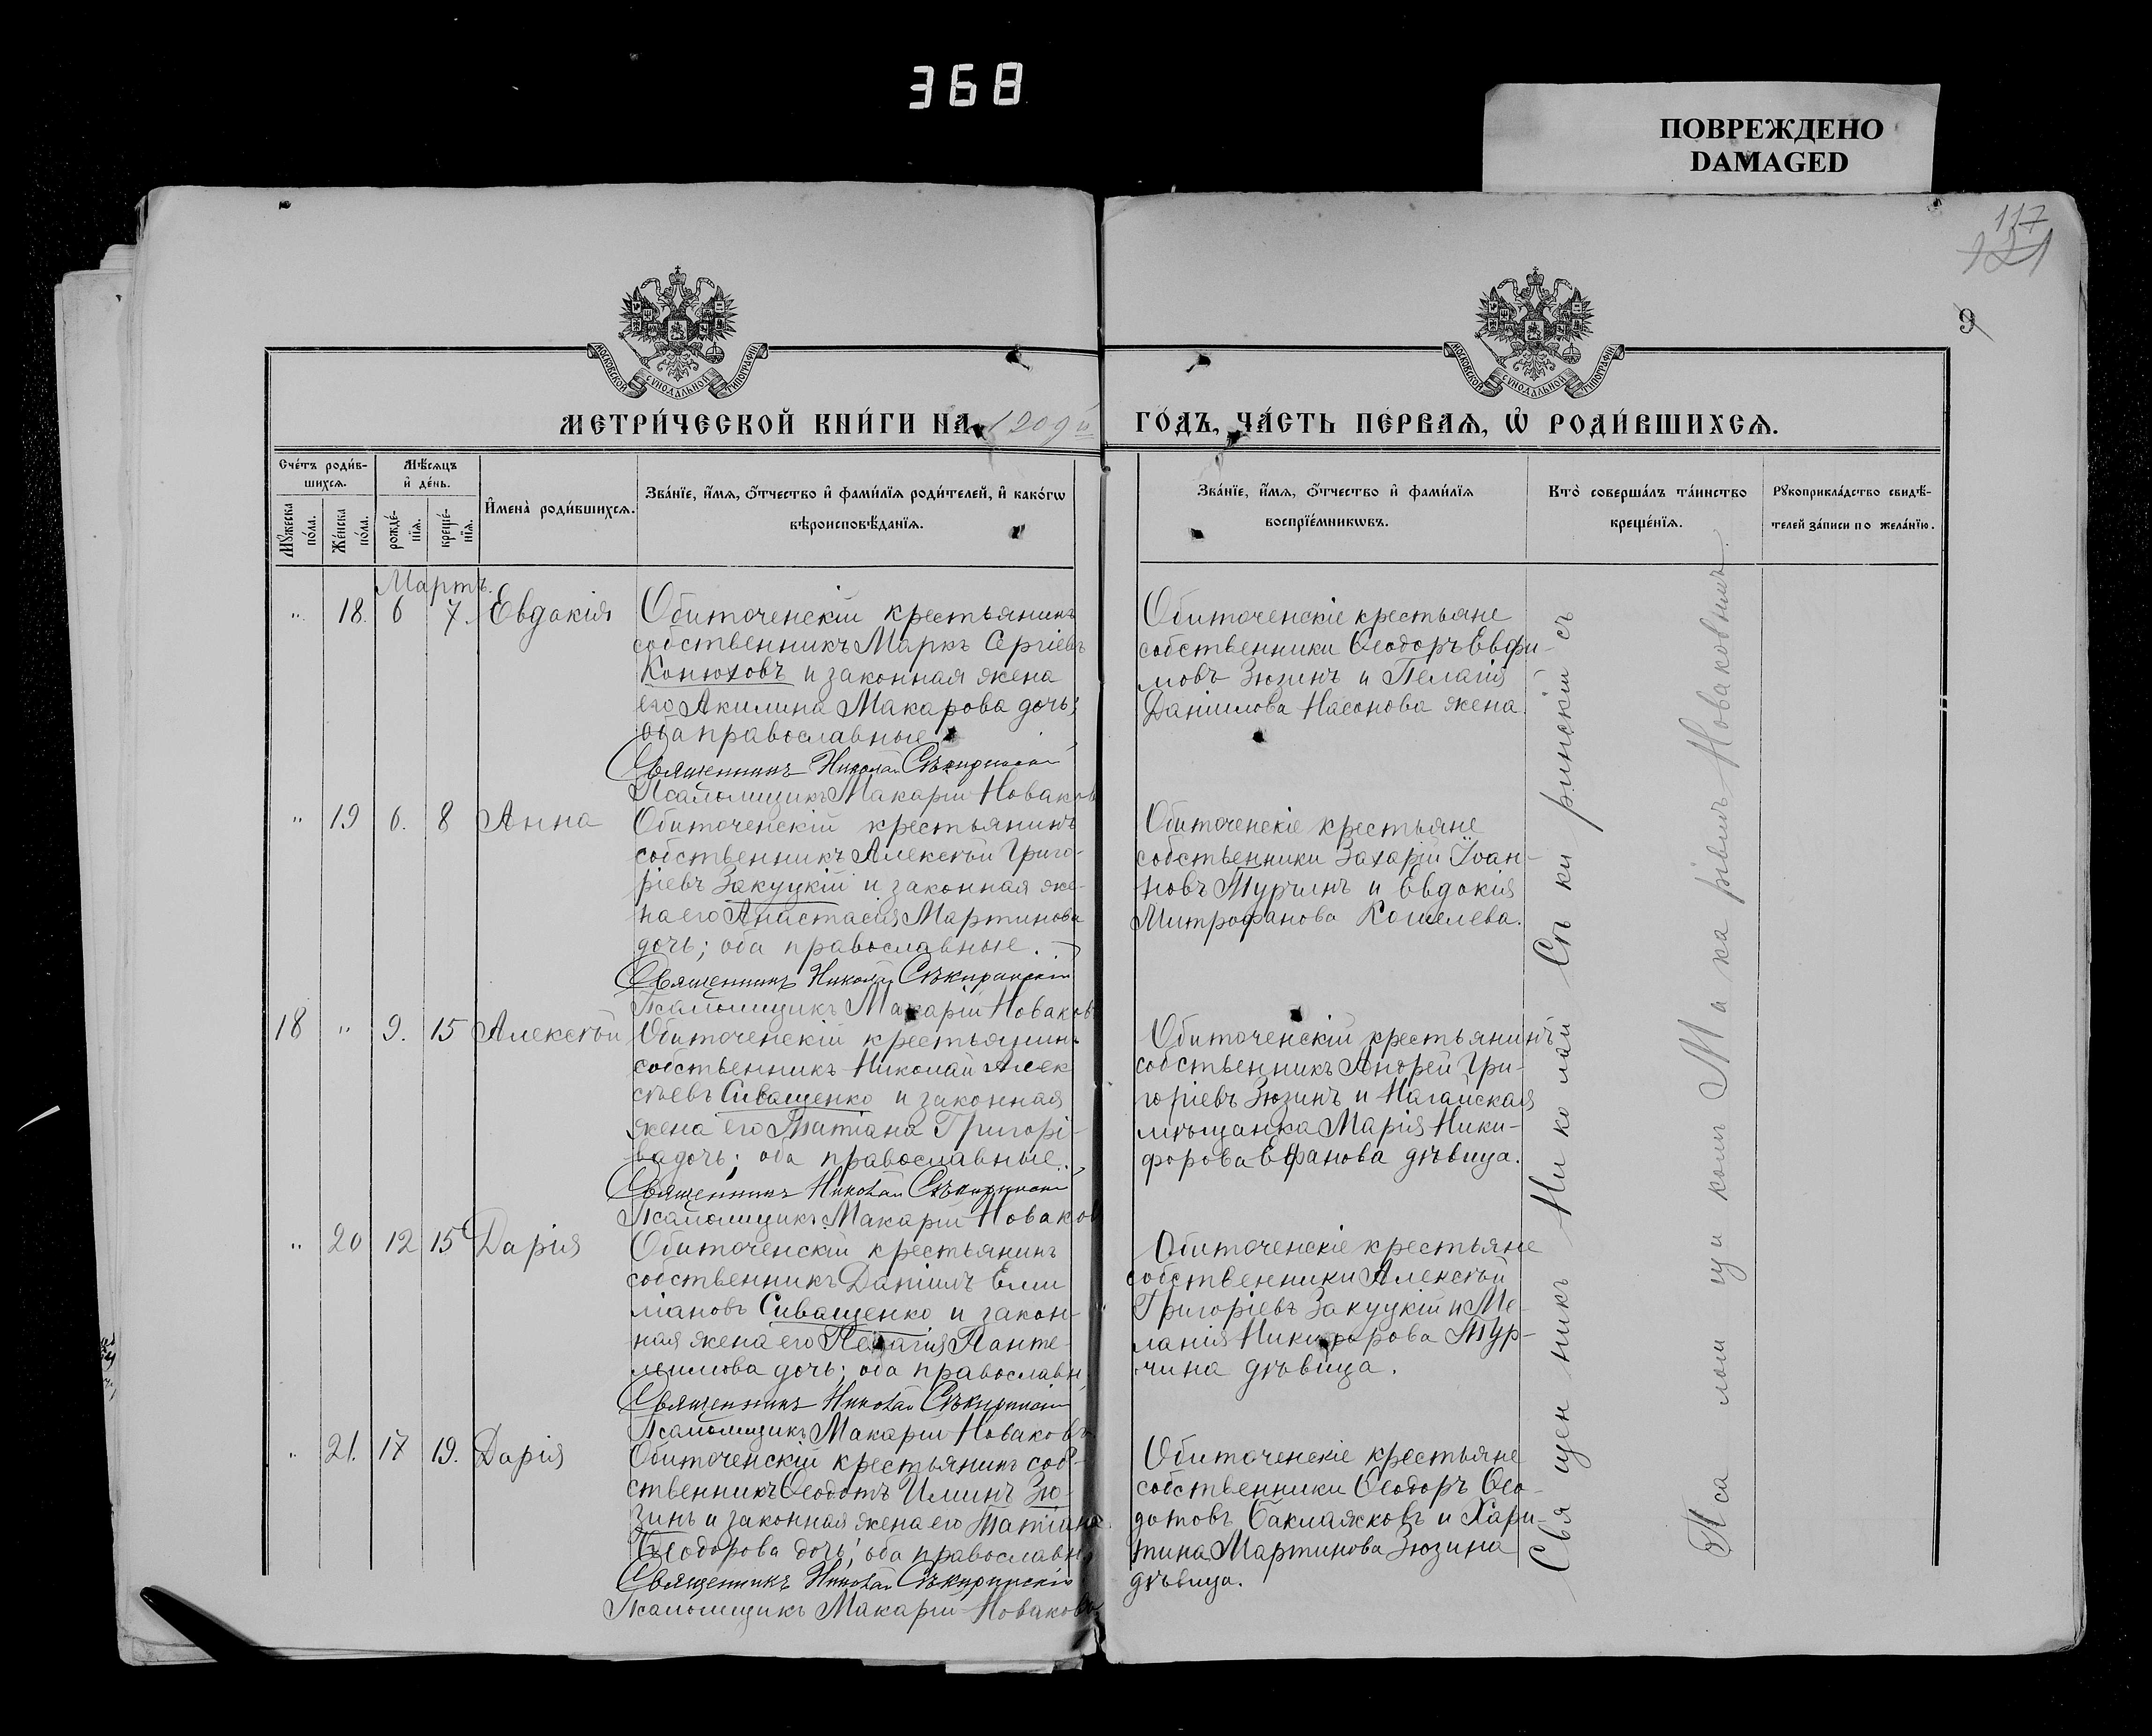 368
ПОВРЕЖДЕНО
DAMAGED
117
121
9
МОСКОВСКОЙ СѴНОДАЛЬНОЙ ТИПОГРАФІИ
МОСКОВСКОЙ СѴНОДАЛЬНОЙ ТИПОГРАФІИ
МЕТРИ́ЧЕСКОЙ КНИ́ГИ НА
ГО́ДЪ, ЧА́СТЬ ПЕ́РВАѦ, Ѡ҆ РОДИ́ВШИХСѦ.
Сче́тъ роди́в-
шихсѧ.
Мѣ́сѧцъ
и҆ де́нь.
Мꙋ́жеска по́ла.
Же́нска по́ла.
рожде́-нїѧ.
креще́-нїѧ.
И҆мена̀ роди́вшихсѧ.
Зва́нїе, и҆́мѧ, ѻ҆́тчество и҆ фами́лїѧ роди́телей, и҆ како́гѡ
вѣроисповѣ́данїѧ.
Зва́нїе, и҆́мѧ, ѻ҆́тчество и҆ фами́лїѧ
воспрїе́мникѡвъ.
Кто̀ соверша́лъ та́инство
креще́нїѧ.
Рꙋкоприкла́дство свидѣ́-
телей за́писи по жела́нїю.
Мартъ.
" 18. 6 7. Евдокія
Обиточенскій крестьянинъ
собственникъ Маркъ Сергіевъ
Конюховъ и законная жена
его Акилина Макарова дочь;
оба православные.
Священникъ Николай Сѣкиринскій
Псаломщикъ Макарій Новаков
Обиточенскіе крестьяне
собственники Ѳеодоръ Евѳи-
мовъ Зюзинъ и Пелагія
Даніилова Насонова жена.
" 19 6. 8 Анна
Обиточенскій крестьянинъ
собственникъ Алексѣй Григо-
ріевъ Закуцкій и законная же-
на его Анастасія Мартинова
дочь; оба православные.
Священникъ Николай Сѣкиринскій
Псаломщикъ Макарій Новаков
Обиточенскіе крестьяне
собственники Захарій Іоан-
новъ Мурчинъ и Евдокія
Митрофанова Кошелева.
18 " 9. 15 Алексѣй
Обиточенскій крестьянинъ
собственникъ Николай Алек
сѣевъ Сиващенко и законная
жена его Татіана Григорі-
ва дочь; оба православные.
Священникъ Николай Сѣкиринскій
Псаломщикъ Макарій Новаков
Обиточенскій крестьянинъ
собственникъ Андрей Гри-
горіевъ Зюзинъ и Нагайская
мѣщанка Марія Ники-
форова Ефанова дѣвица.
" 20 12 15 Дарія
Обиточенскій крестьянинъ
собственникъ Даніилъ Еми
ліановъ Сиващенко и закон-
ная жена его Пелагія Панте-
леимова дочь; оба православн
Священникъ Николай Сѣкиринскій
Псаломщикъ Макарій Новаковъ
Обиточенскіе крестьяне
собственники Алексѣй
Григоріевъ Закуцкій и Ме-
ланія Никифорова Мур-
чина дѣвица.
" 21. 17 19. Дарія
Обиточенскій крестьянинъ соб-
ственникъ Ѳеодотъ Илиинъ Зю-
зинъ и законная жена его Татіана
Ѳеодорова дочь; оба православн
Священникъ Николай Сѣкиринскій
Псаломщикъ Макарій Новаков
Обиточенскіе крестьяне
собственники Ѳеодоръ Ѳео-
дотовъ Баклажковъ и Хари-
тина Мартинова Зюзина
дѣвица.
Священникъ Николай Сѣкиринскій съ
Псаломщикомъ Макаріемъ Новаковымъ.